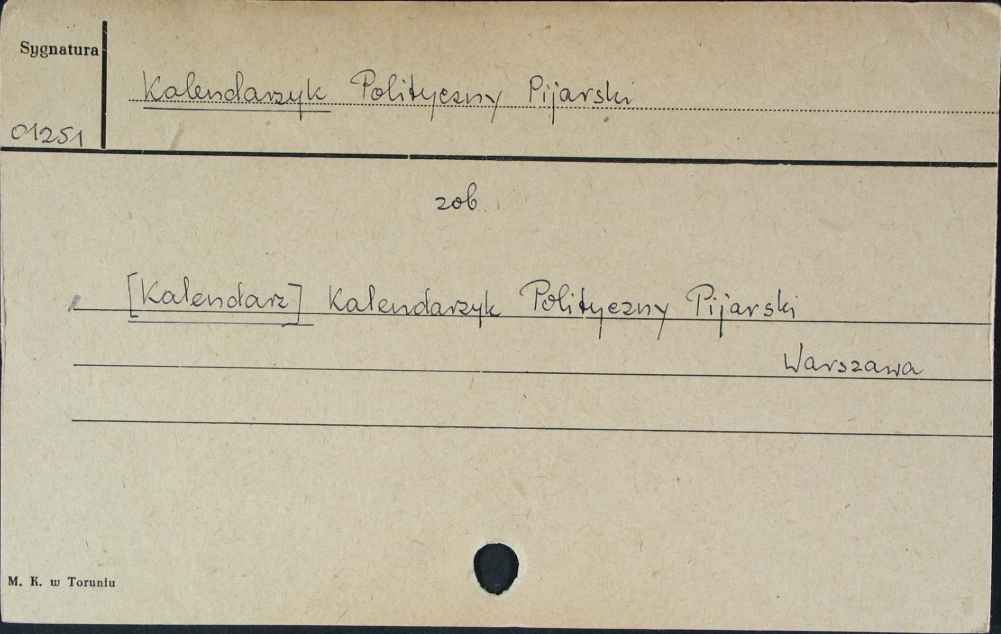 Sygnatura
Kalendarzyk Polityczny Pijarski
01251
zob.
[Kalendarz] Kalendarzyk Polityczny Pijarski
Warszawa
M. K. w Toruniu